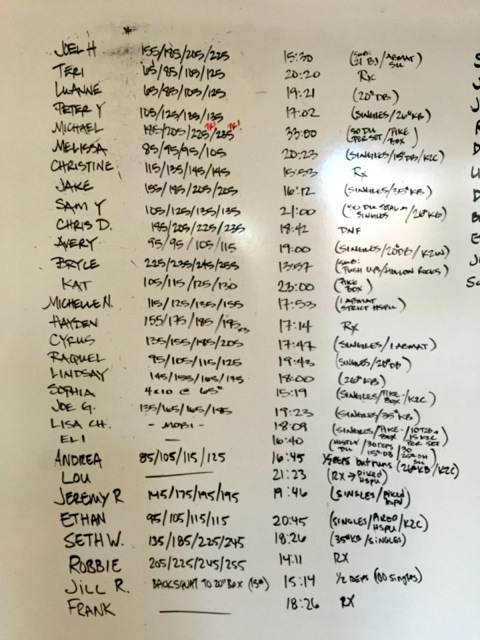 JOEL H 155/185/205/225 15:30 (SUB: 21 BJ/ABMAT SU)
TERI 65/85/105/125 20:20 RX
LUANNE 65/85/105/125 19:21 (20#DB)
PETER Y 105/125/135/135 17:02 (SINGLES/26#KB)
MICHAEL 185/205/225/235 33:00 (50 DU PER SET/PIKE BOX)
MELISSA 85/95/95/105 20:23 (SINGLES/15#DB/K2C)
CHRISTINE 115/135/145/145 15:53 RX
JAKE 155/185/205/205 16:12 (SINGLES/35#KB)
SAM Y 105/125/135/135 21:00 (50 DU SINGLES/26#KB)
CHRIS D. 185/205/225/235 18:42 DNF
AVERY 95/95/105/115 19:00 (SINGLES/20#DB)
BRYCE 225/235/245/255 13:57 (SUB: PUSH UPS/HOLLOW ROCKS)
KAT 105/115/125/130 23:00 (PIKE BOX)
MICHELLE N. 115/125/135/155 17:53 (1 ABMAT STRICT HSPU)
HAYDEN 155/175/185/195 17:14 RX
CYRUS 135/155/185/205 17:47 (SINGLES/1 ABMAT)
RAQUEL 95/105/115/125 19:43 (SINGLES/20#DB)
LINDSAY 145/155/165/175 18:00 (26#KB)
SOPHIA 4x10 @ 65# 15:19 (SINGLES/PIKE-BOX/K2C)
JOE G. 135/165/165/185 19:23 (SINGLES/35#KB)
LISA CH. - MOBI - 18:09 (SINGLES/PIKE-BOX/15 K2C PER SET)
ELI — 16:40
ANDREA 85/105/115/125 16:45 (26#KB/K2C)
LOU — 21:23 (RX → PIKED HSPU)
JEREMY R 145/175/195/195 19:46 (SINGLES/PIKED HSPU)
ETHAN 95/105/115/115 20:45 (SINGLES/PIKED HSPU/K2C)
SETH W. 135/185/225/245 18:26 (35#KB/SINGLES)
ROBBIE 205/225/245/255 14:11 RX
JILL R. BACK SQUAT TO 20" BOX (15#) 15:14 1/2 REPS (100 SINGLES)
FRANK — 18:26 RX